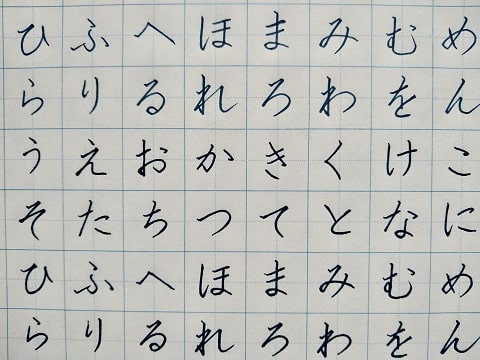 ひふへほまみむめ
らりるれろわをん
うえおかきくけこ
そたちつてとなに
ひふへほまみむめ
らりるれろわをん